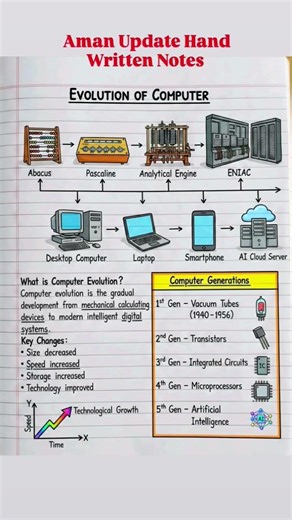 Aman Update Hand
Written Notes
EVOLUTION OF COMPUTER
Abacus
Pascaline
Analytical Engine
ENIAC
Desktop Computer
Laptop
Smartphone
AI Cloud Server
What is Computer Evolution?
Computer evolution is the gradual
development from mechanical calculating
devices to modern intelligent digital
systems.
Key Changes:
• Size decreased
• Speed increased
• Storage increased
• Technology improved
Y
Speed
Technological Growth
X
Time
Computer Generations
1st Gen – Vacuum Tubes
(1940-1956)
2nd Gen – Transistors
3rd Gen – Integrated Circuits
IC
4th Gen – Microprocessors
5th Gen – Artificial
Intelligence
AI